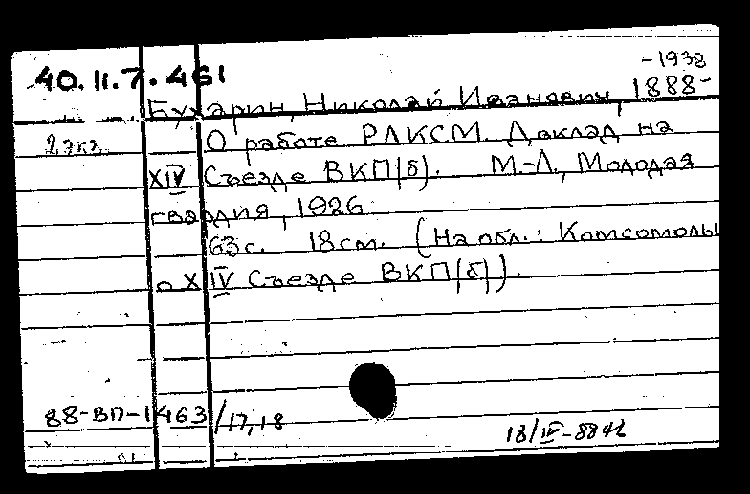 40.11.7.461
-1938
Бухарин, Николай Иванович, 1888-
2 экз.
О работе РЛКСМ. Доклад на
XIV Съезде ВКП(б). М.-Л., Молодая
гвардия, 1926
63 с. 18 см. (На обл.: Комсомолы
о XIV Съезде ВКП(б))
88-ВП-1463/17,18
18/IV-88